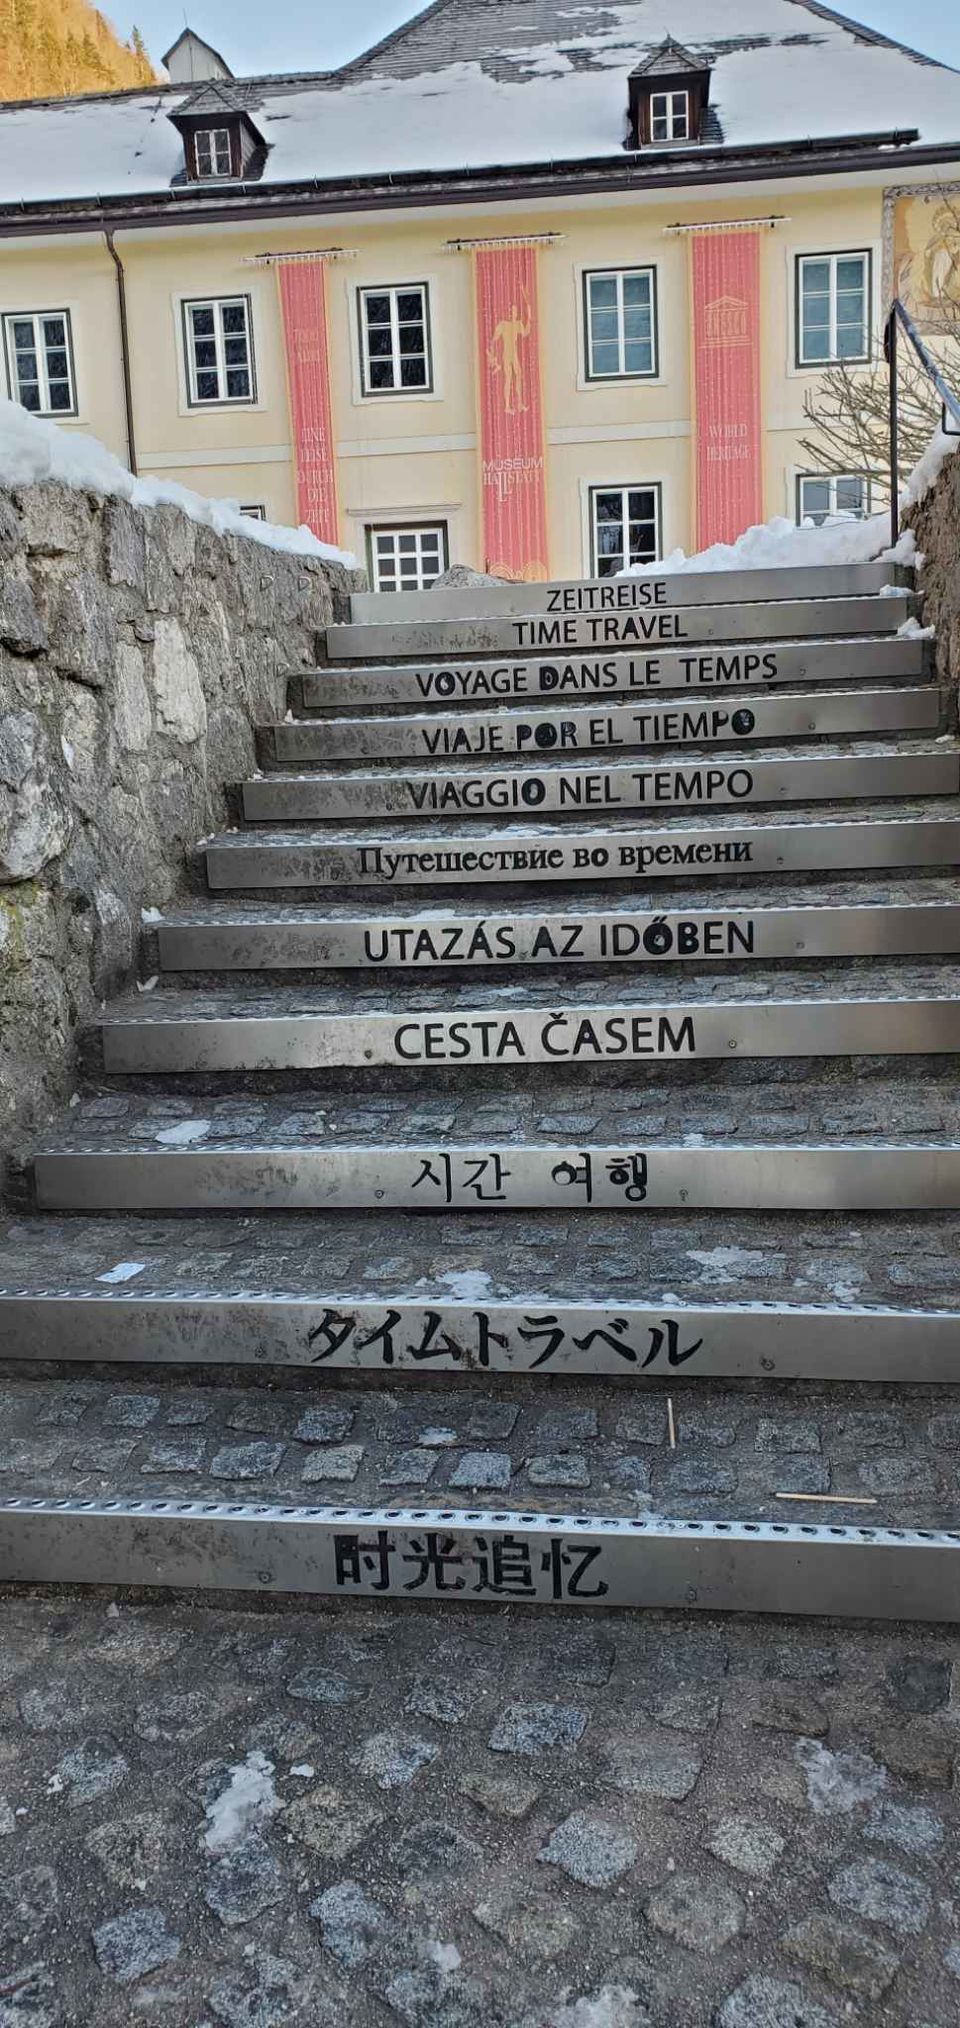 7000
EINE
REISE
DURCH
DIE
ZEIT
MUSEUM
HALLSTATT
UNESCO
WORLD
HERITAGE
ZEITREISE
TIME TRAVEL
VOYAGE DANS LE TEMPS
VIAJE POR EL TIEMPO
VIAGGIO NEL TEMPO
Путешествие во времени
UTAZÁS AZ IDŐBEN
CESTA ČASEM
시간 여행
タイムトラベル
时光追忆